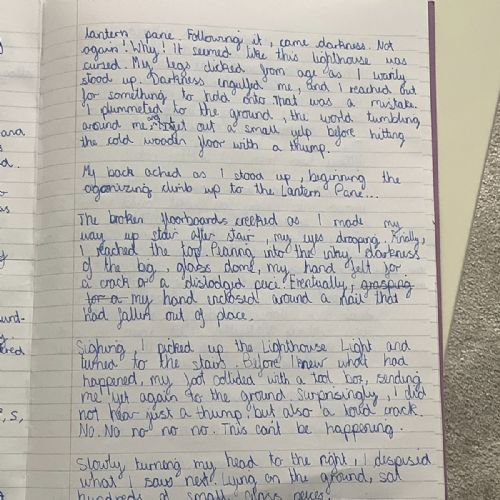 lantern pane. Following it, came darkness. Not
again! Why! It seemed like this lighthouse was
cursed. My legs clicked from age as I warily
stood up. Darkness engulfed me, and I reached out
for something to hold onto. That was a mistake.
I plummeted to the ground, the world tumbling
around me, as I let out a small yelp before hitting
the cold wooden floor with a thump.
My back ached as I stood up, beginning the
agonizing climb up to the Lantern Pane...
The broken floorboards creeked as I made my
way up stair after stair, my eyes drooping. Finally,
I reached the top. Pearing into the inky darkness
of the big, glass dome, my hand felt for
a crack or a dislodged peice. Eventually, grasping
for a my hand inclosed around a nail that
had fallen out of place.
Sighing, I picked up the Lighthouse Light and
turned to the stairs. Before I knew what had
happened, my foot collided with a tool box, sending
me yet again to the ground. Surprisingly, I did
not hear just a thump, but also a loud crack.
No. No no no no. This can't be happening.
Slowly turning my head to the right, I despised
what I saw next. Lying on the ground, sat
hundreds of small glass peices!